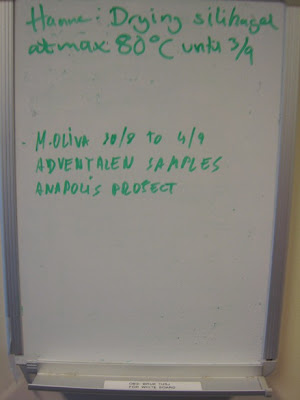 Hanne: Drying silikagel
at max 80°C until 3/9
M. OLIVA 30/8 to 4/9
ADVENTALEN SAMPLES
ANAPOLIS PROJECT